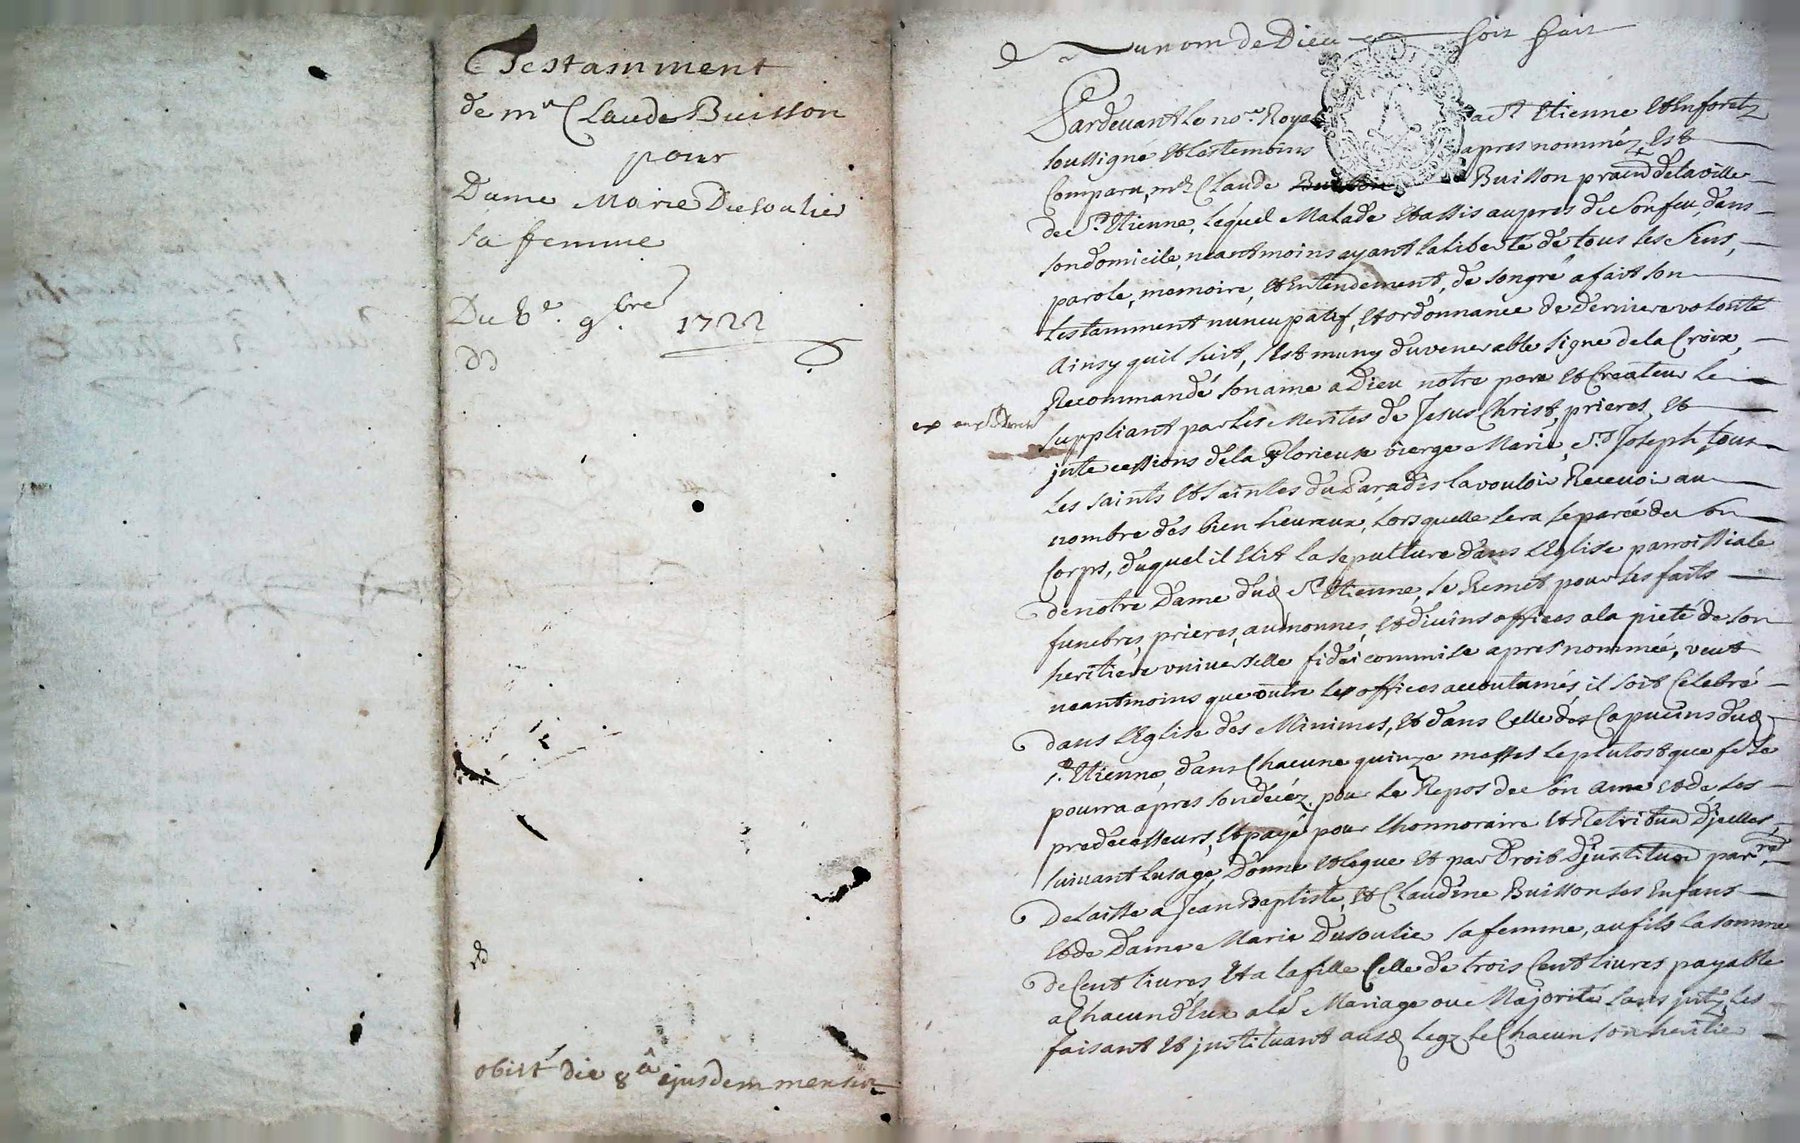 Testamment
de mr Claude Buisson
pour
Dame Marie Dusoulier
sa femme
Du 6e. 9bre 1722
obiit die 8a ejusdem mensis
Au nom de Dieu soit fait
Pardevant le nore. Royal a St Etienne et en foretz
soussigné et les temoins apres nomméz, Est
Comparu, mr Claude Buisson praticn de la ville
de St. Etienne, lequel Malade et assis aupres de son feu, dans
son domicile, neantmoins ayant la liberté de tous ses sens,
parole, memoire, et Entendement, de son gré a fait son
testamment nuncupatif, et ordonnance de derniere volonté
Ainsy quil suit, s'est muny du venerable signe de la Croix,
Recommandé son ame a Dieu notre pere et Createur le
suppliant par les Merites de Jesus Christ, prieres, et
jntecessions de la Glorieuse vierge Marie, St. Joseph tous
les saints et saintes du Paradis la vouloir Recevoir au
nombre des bien heureux, lorsquelle sera separée de son
Corps, duquel il Elit la sepulture dans l'Eglise parroissiale
de notre Dame dud St. Etienne, se Remet pour les faits
funebres, prieres, aumonnes, et divins offices a la pieté de son
heritiere universelle fideicommise apres nommée, veut
neantmoins que outre les offices accoutumés il soit Celebré
dans l'Eglise des Minimes, et dans Celle des Capucins dud
St. Etienne, dans Chacune quinze messes le plutost que se
pourra apres son decéz, pour le Repos de son ame et de ses
predecesseurs, et payé pour l'honnoraire et Retribution d'jcelles,
suivant lusage, Donne et legue et par Droit d'jnstitution parre.
delaisse a Jean Baptiste, et Claudine Buisson ses Enfans
et de Dame Marie Dusoulier sa femme, au fils la somme
de Cent livres, et a la fille Celle de trois Cent livres payable
a Chacun d'Eux a leur Mariage ou Majorité sans jnts, les
faisant et jnstituant ausd legz le Chacun son heritier